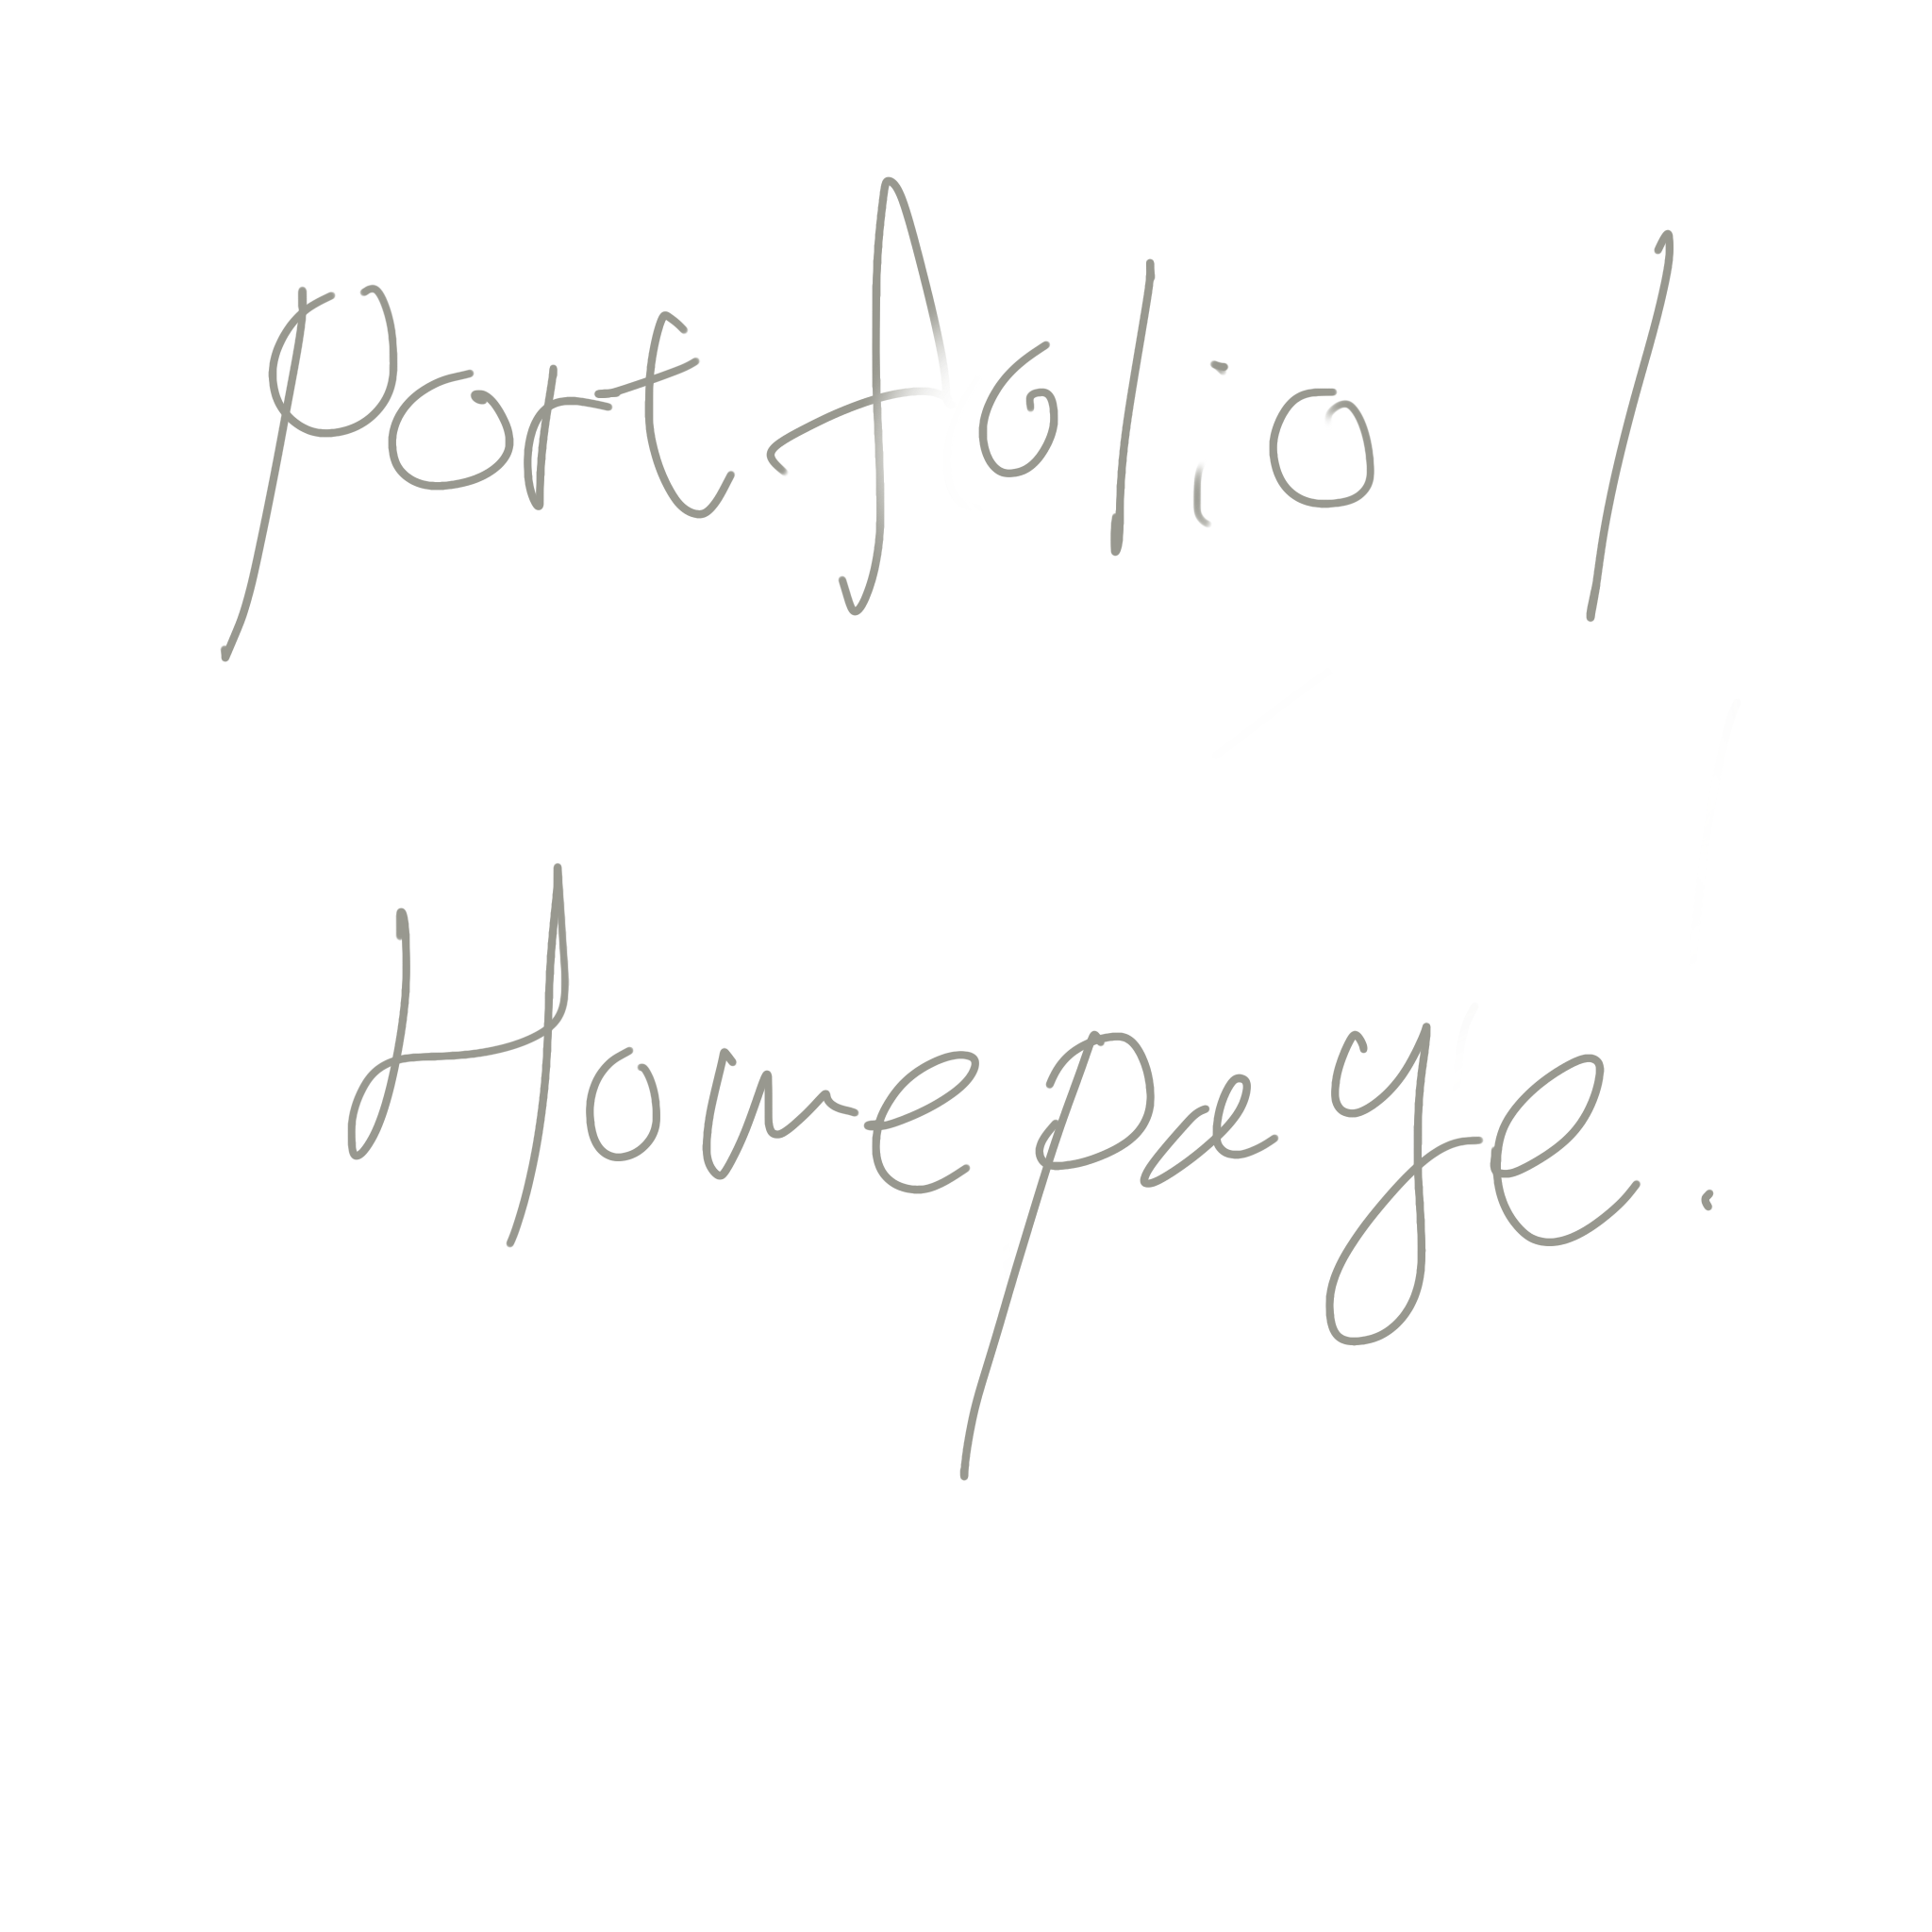 Portfolio /
Homepage.